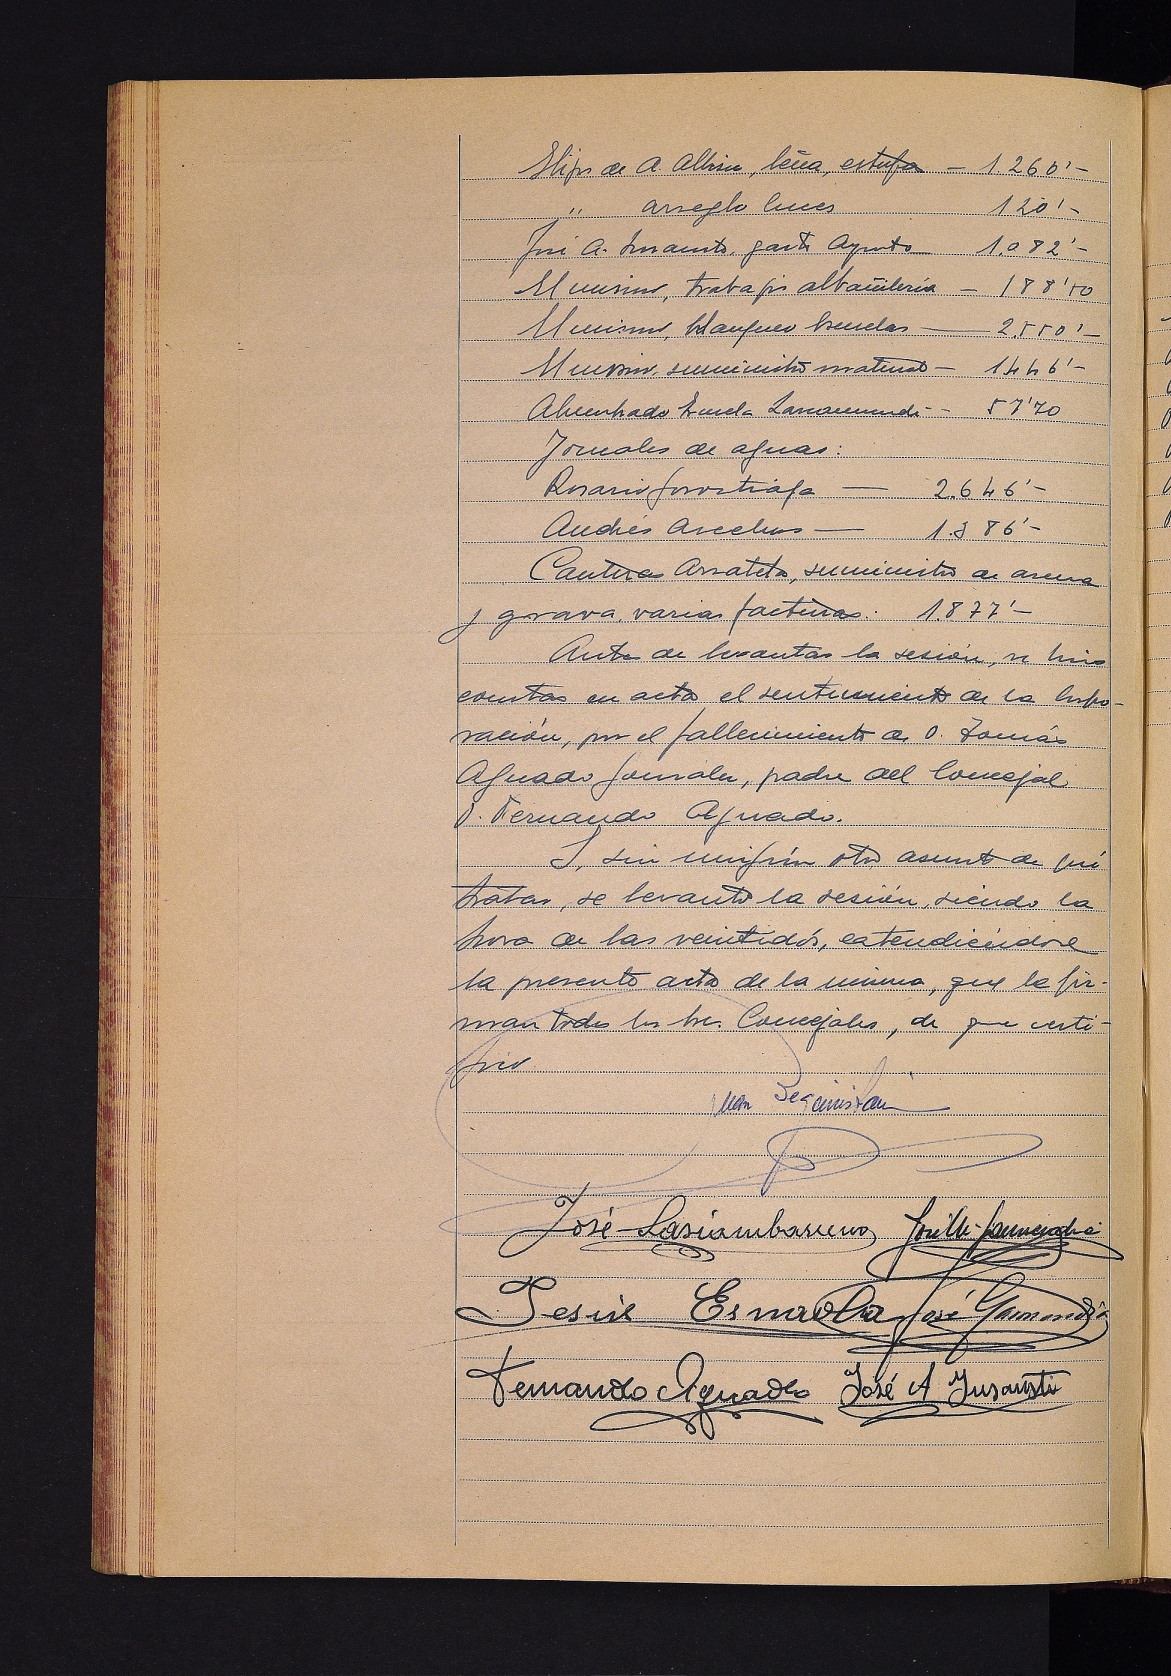 Hijos de A. Albisu, leña, estufa — 1.260'-
" arreglo luces 120'-
José A. Insausti, gasto Aynto 1.082'-
El mismo, trabajos albañileria — 188'50
El mismo, blanqueo Escuelas — 2.550'-
El mismo, suministro material — 1446'-
Alumbrado Escuela — 57'70
Jornales de aguas:
Rosario Gorostiaga — 2.646'-
Andrés Arcelus — 1.386'-
Canteras Arrateta, suministro de arena
y grava, varias facturas: 1.877'-
Antes de levantar la sesión, se hizo
constar en acta el sentimiento de la Corpo-
ración, por el fallecimiento de D. Tomás
Aguado González, padre del Concejal
D. Fernando Aguado.
Y, sin ningún otro asunto de qué
tratar, se levantó la sesión, siendo la
hora de las veintidós, extendiéndose
la presente acta de la misma, que la fir-
man todos los Sres. Concejales, de que certi-
fico.
Juan Beguiristain
José Lasciambarrena
Jesús Esnaola José Garmendia
Fernando Aguado José A Insausti